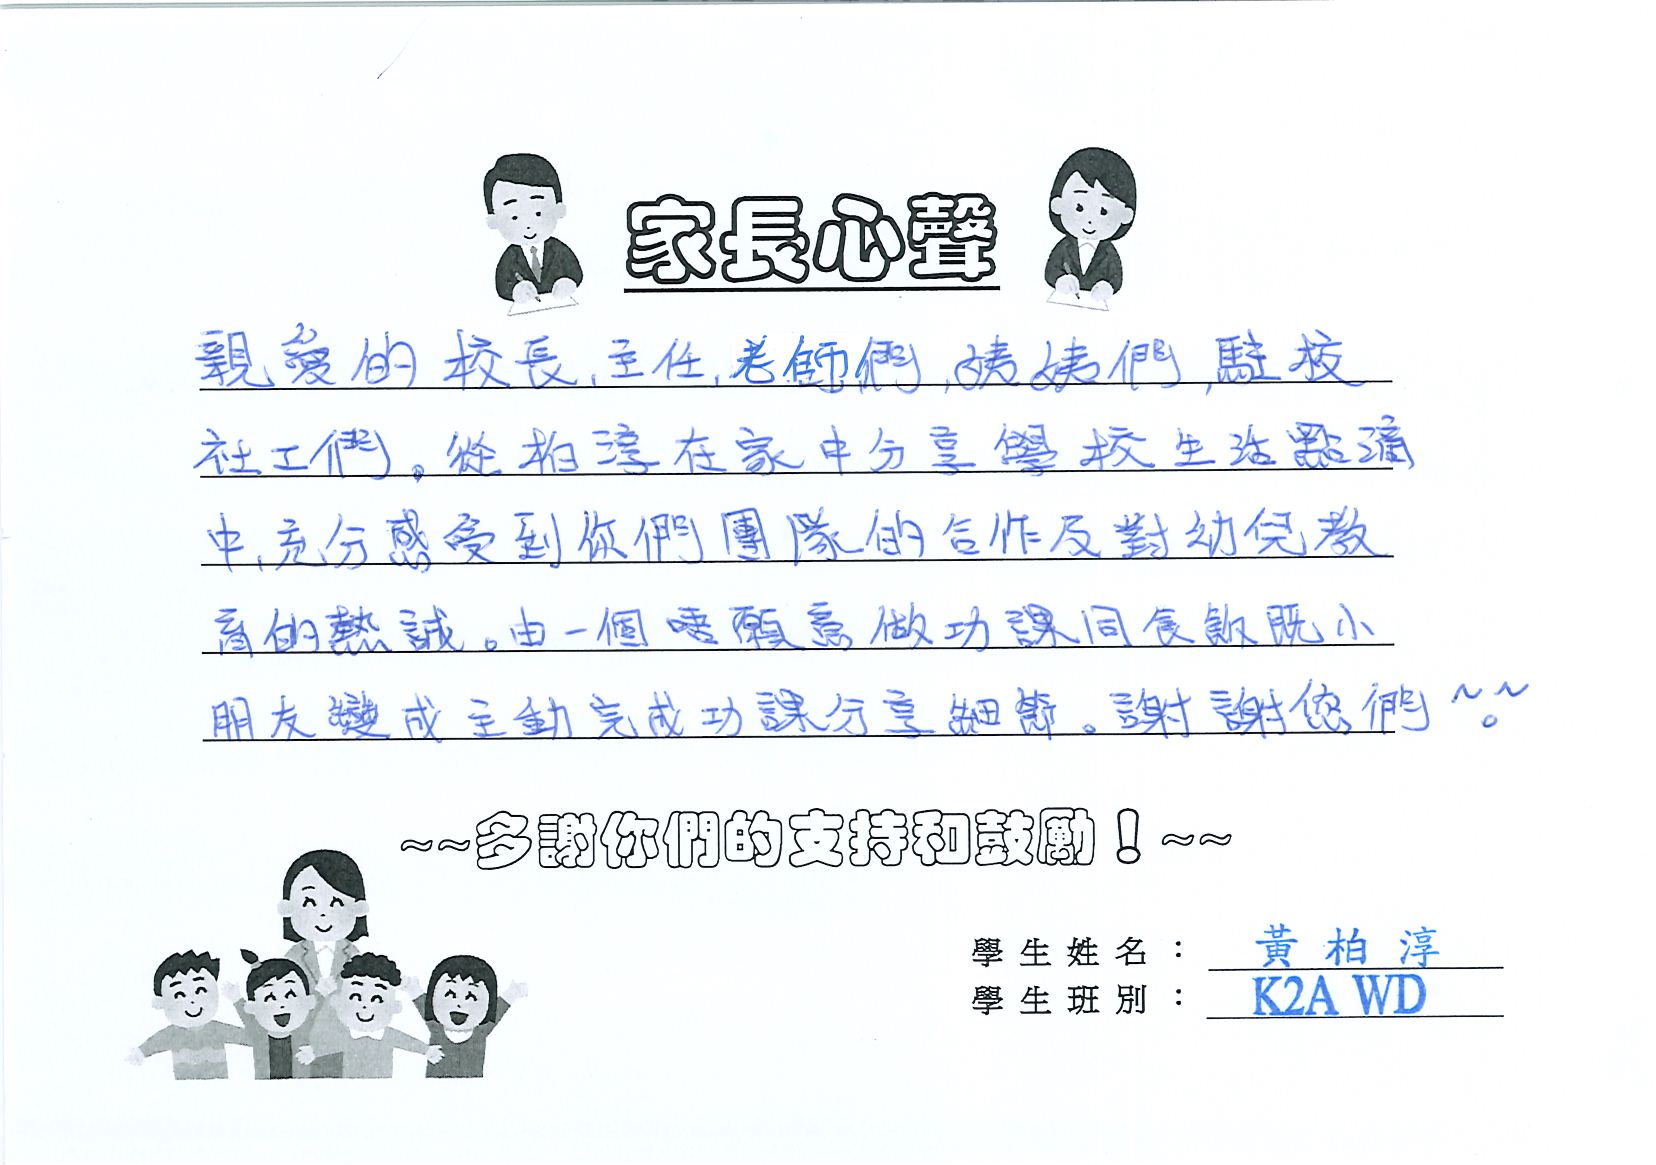 家長心聲
親愛的校長,主任,老師們,姨姨們,駐校
社工們。從柏淳在家中分享學校生活點滴
中,充分感受到你們團隊的合作及對幼兒教
育的熱誠。由一個唔願意做功課同食飯既小
朋友變成主動完成功課分享細節。謝謝您們~~。
~~多謝你們的支持和鼓勵!~~
學生姓名: 黃柏淳
學生班別: K2A WD